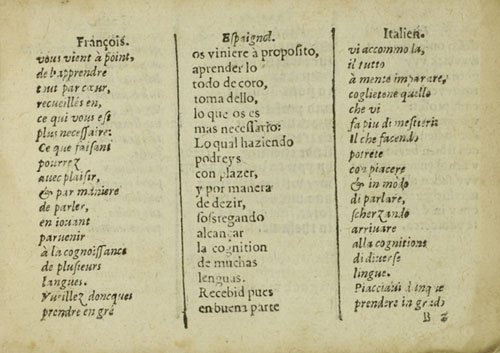 François.
vous vient à point,
de l'apprendre
tout par cœur,
recueillés en,
ce qui vous est
plus necessaire:
Ce que faisant
pourrez
auec plaisir,
& par maniere
de parler,
en iouant
paruenir
à la cognoissance
de plusieurs
langues.
Vueillez doncques
prendre en gré
Espaignol.
os viniere à proposito,
aprender lo
todo de coro,
toma dello,
lo que os es
mas necessario:
Lo qual haziendo
podreys
con plazer,
y por manera
de dezir,
sossegando
alcançar
la cognition
de muchas
lenguas.
Recebid pues
en buena parte
Italien.
vi accommoda,
il tutto
à mente imparare,
coglietene quello
che vi
fa piu di mestieri:
Il che facendo
potrete
con piacere
& in modo
di parlare,
scherzando
arriuare
alla cognitione
di diuerse
lingue.
Piacciaui
prendere in grado
B